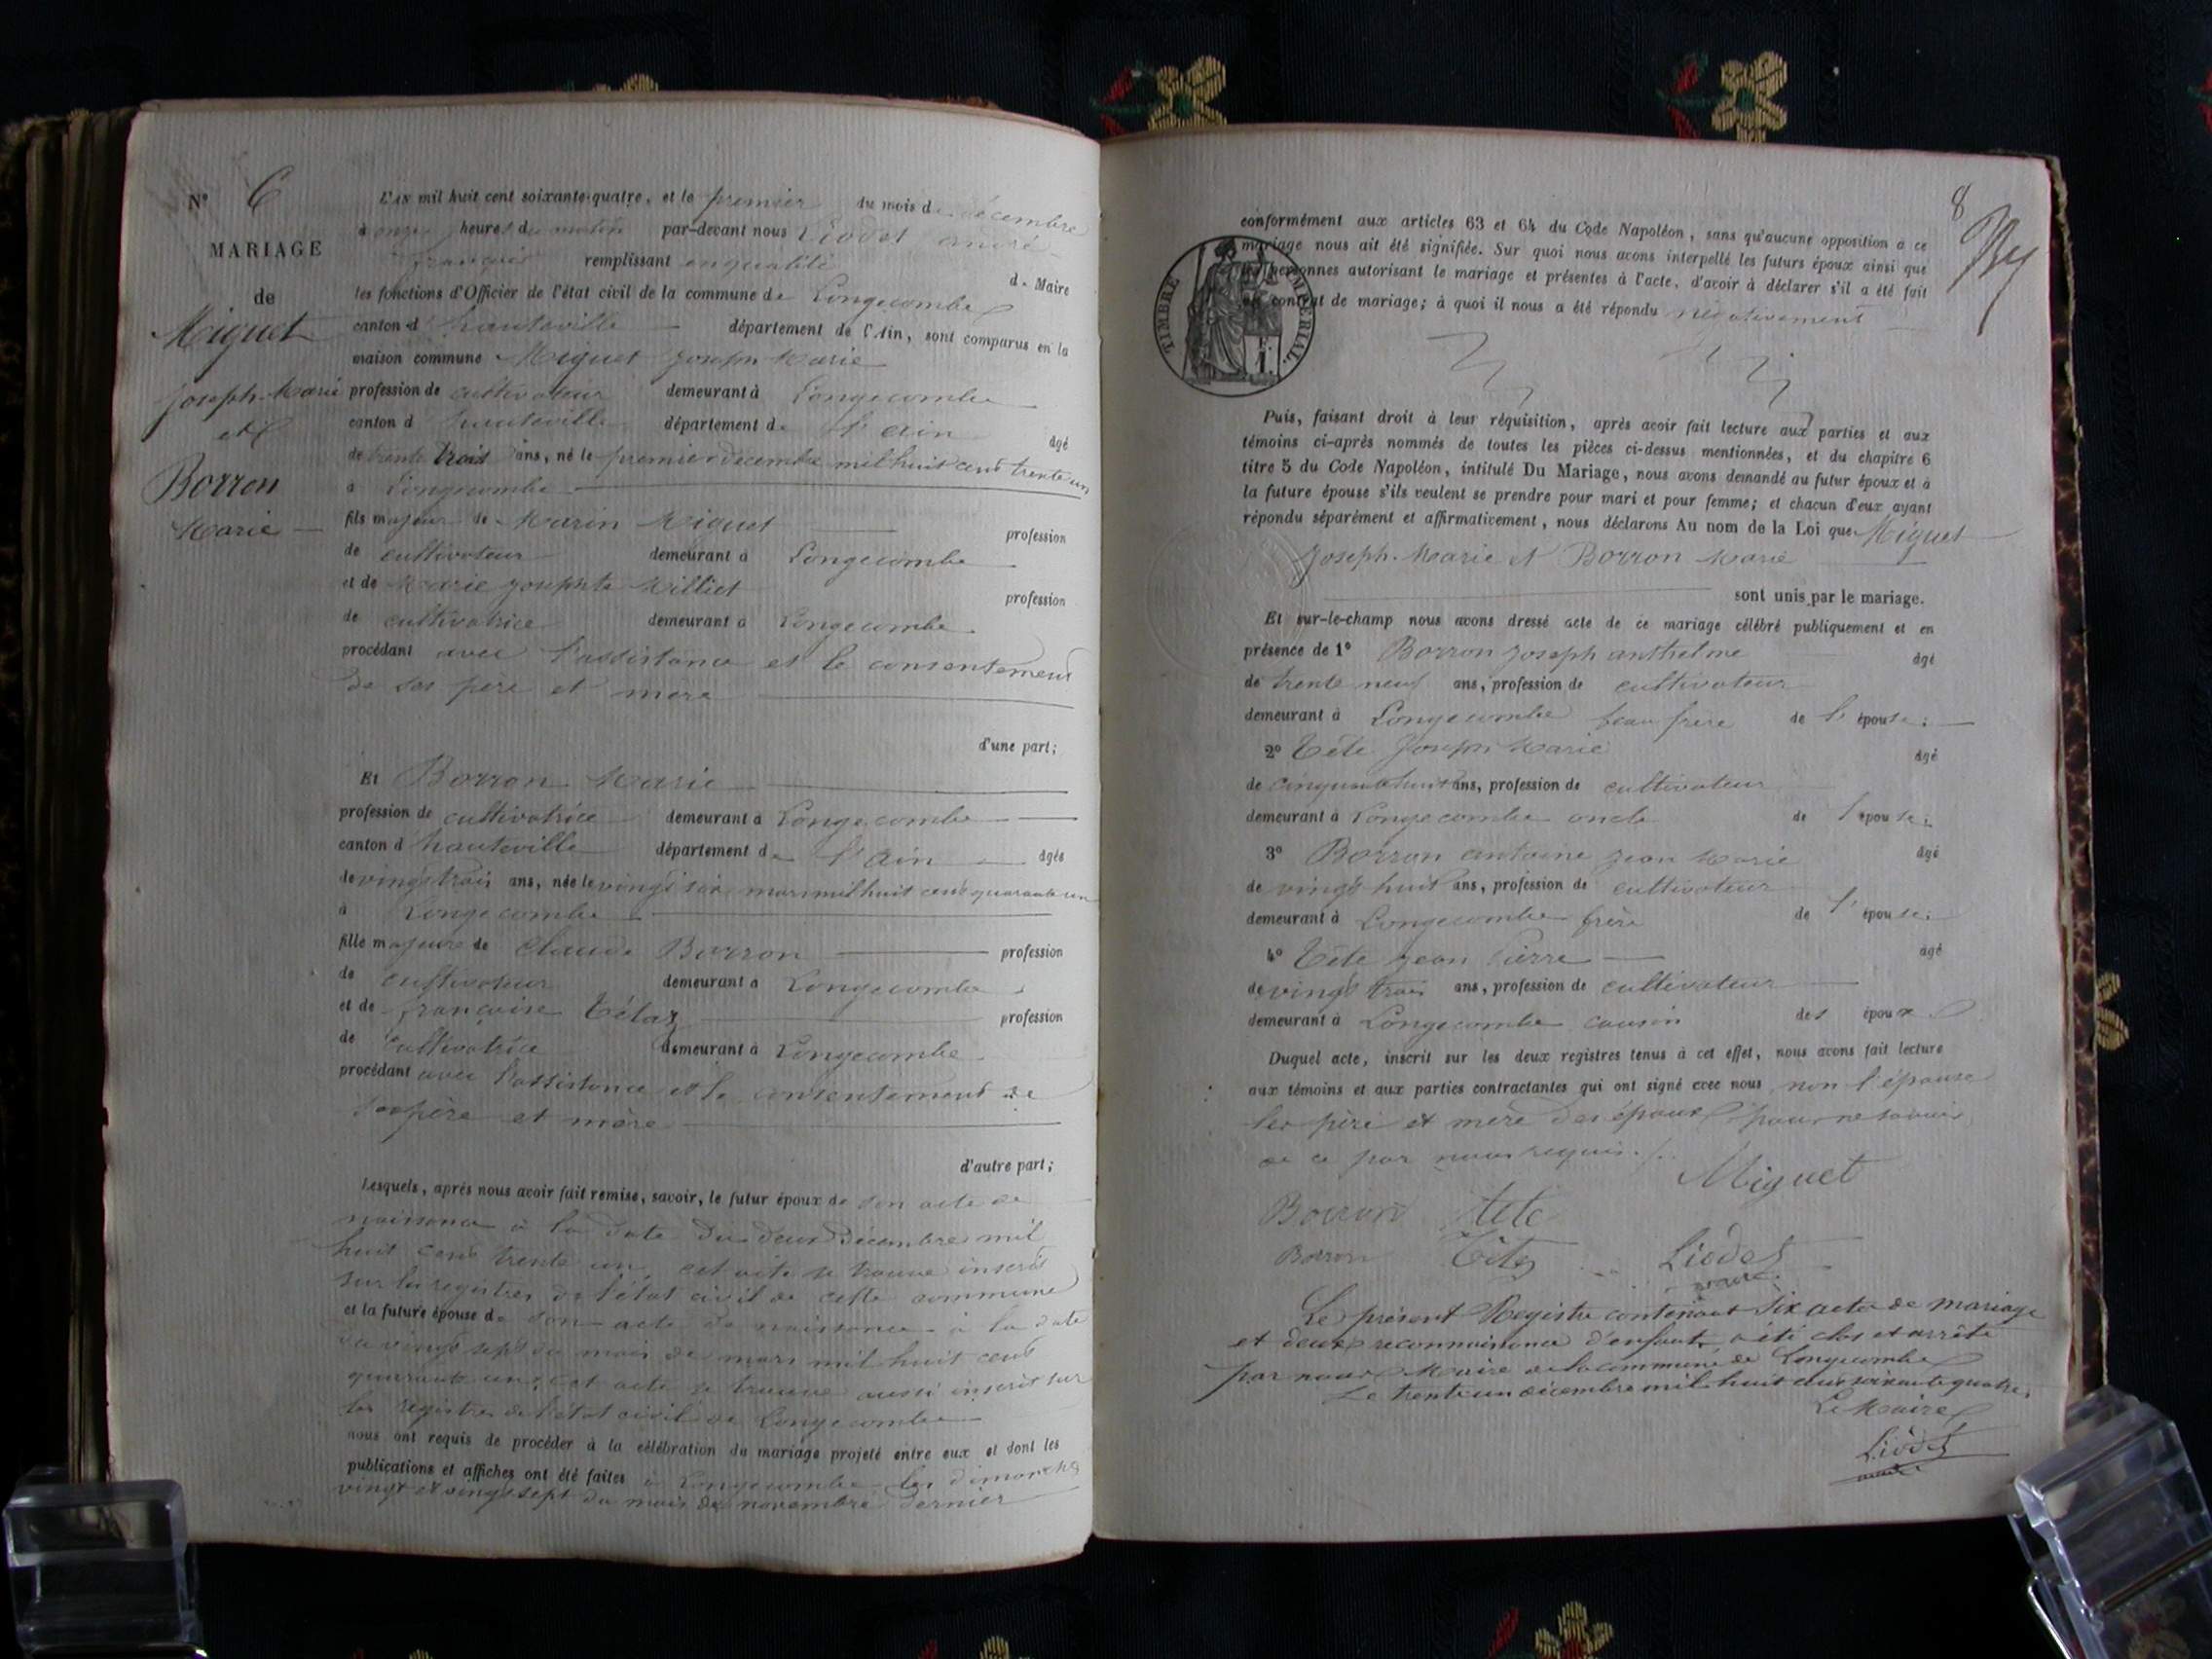 N° 6
MARIAGE
de
Miguet
Joseph-Marie
et
Borron
Marie
L'AN mil huit cent soixante-quatre, et le premier du mois de décembre
à onze heures du matin par-devant nous Liodet andré
françois remplissant en qualité de Maire
les fonctions d'Officier de l'état civil de la commune de Longecombe
canton d'hauteville département de l'Ain, sont comparus en la
maison commune Miguet Joseph Marie
profession de cultivateur demeurant à Longecombe
canton d'hauteville département de l'ain âgé
de trente trois ans, né le premier décembre mil huit cent trente un
à Longecombe
fils majeur de Marin Miguet profession
de cultivateur demeurant à Longecombe
et de Marie josephte Milliet profession
de cultivatrice demeurant à Longecombe
procédant avec l'assistance et le consentement
de ses père et mère
d'une part;
Et Borron Marie
profession de cultivatrice demeurant à Longecombe
canton d'hauteville département de l'Ain âgés
de vingt trois ans, née le vingt six mars mil huit cent quarante un
à Longecombe
fille majeure de Claude Borron profession
de cultivateur demeurant à Longecombe
et de françoise Tétaz profession
de cultivatrice demeurant à Longecombe
procédant avec l'assistance et le consentement de
son père et mère
d'autre part;
Lesquels, après nous avoir fait remise, savoir, le futur époux de son acte de
naissance à la date du deux Décembre mil
huit cent trente un, cet acte se trouve inscrit
sur les registres de l'état civil de cette commune
et la future épouse de son acte de naissance à la date
du vingt sept du mois de mars mil huit cent
quarante un, cet acte se trouve aussi inscrit sur
les registres de l'état civil de Longecombe
nous ont requis de procéder à la célébration du mariage projeté entre eux et dont les
publications et affiches ont été faites à Longecombe les dimanches
vingt et vingt sept du mois de novembre dernier
8
conformément aux articles 63 et 64 du Code Napoléon, sans qu'aucune opposition à ce
mariage nous ait été signifiée. Sur quoi nous avons interpellé les futurs époux ainsi que
les personnes autorisant le mariage et présentes à l'acte, d'avoir à déclarer s'il a été fait
un contrat de mariage; à quoi il nous a été répondu négativement
TIMBRE IMPÉRIAL.
Puis, faisant droit à leur réquisition, après avoir fait lecture aux parties et aux
témoins ci-après nommés de toutes les pièces ci-dessus mentionnées, et du chapitre 6
titre 5 du Code Napoléon, intitulé Du Mariage, nous avons demandé au futur époux et à
la future épouse s'ils veulent se prendre pour mari et pour femme; et chacun d'eux ayant
répondu séparément et affirmativement, nous déclarons Au nom de la Loi que Miguet
Joseph-Marie et Borron Marie
sont unis par le mariage.
Et sur-le-champ nous avons dressé acte de ce mariage célébré publiquement et en
présence de 1° Borron Joseph anthelme âgé
de trente neuf ans, profession de cultivateur
demeurant à Longecombe beau frère de l'épouse;
2° Tête Joseph Marie âgé
de cinquante huit ans, profession de cultivateur
demeurant à Longecombe oncle de l'épouse;
3° Borron antoine jean Marie âgé
de vingt huit ans, profession de cultivateur
demeurant à Longecombe frère de l'épouse;
4° Tête jean Pierre âgé
de vingt trois ans, profession de cultivateur
demeurant à Longecombe cousin des époux
Duquel acte, inscrit sur les deux registres tenus à cet effet, nous avons fait lecture
aux témoins et aux parties contractantes qui ont signé avec nous non l'épouse
les père et mère des époux pour ne savoir
de ce par nous requis./.
Miguet
Borron tete
Borron Tête Liodet
maire
Le présent Registre contenant Six actes de mariage
et deux reconnaissance d'enfant, a été clos et arrêté
par nous Maire de la commune de Longecombe
Le trente un décembre mil huit cent soixante quatre.
Le Maire
Liodet